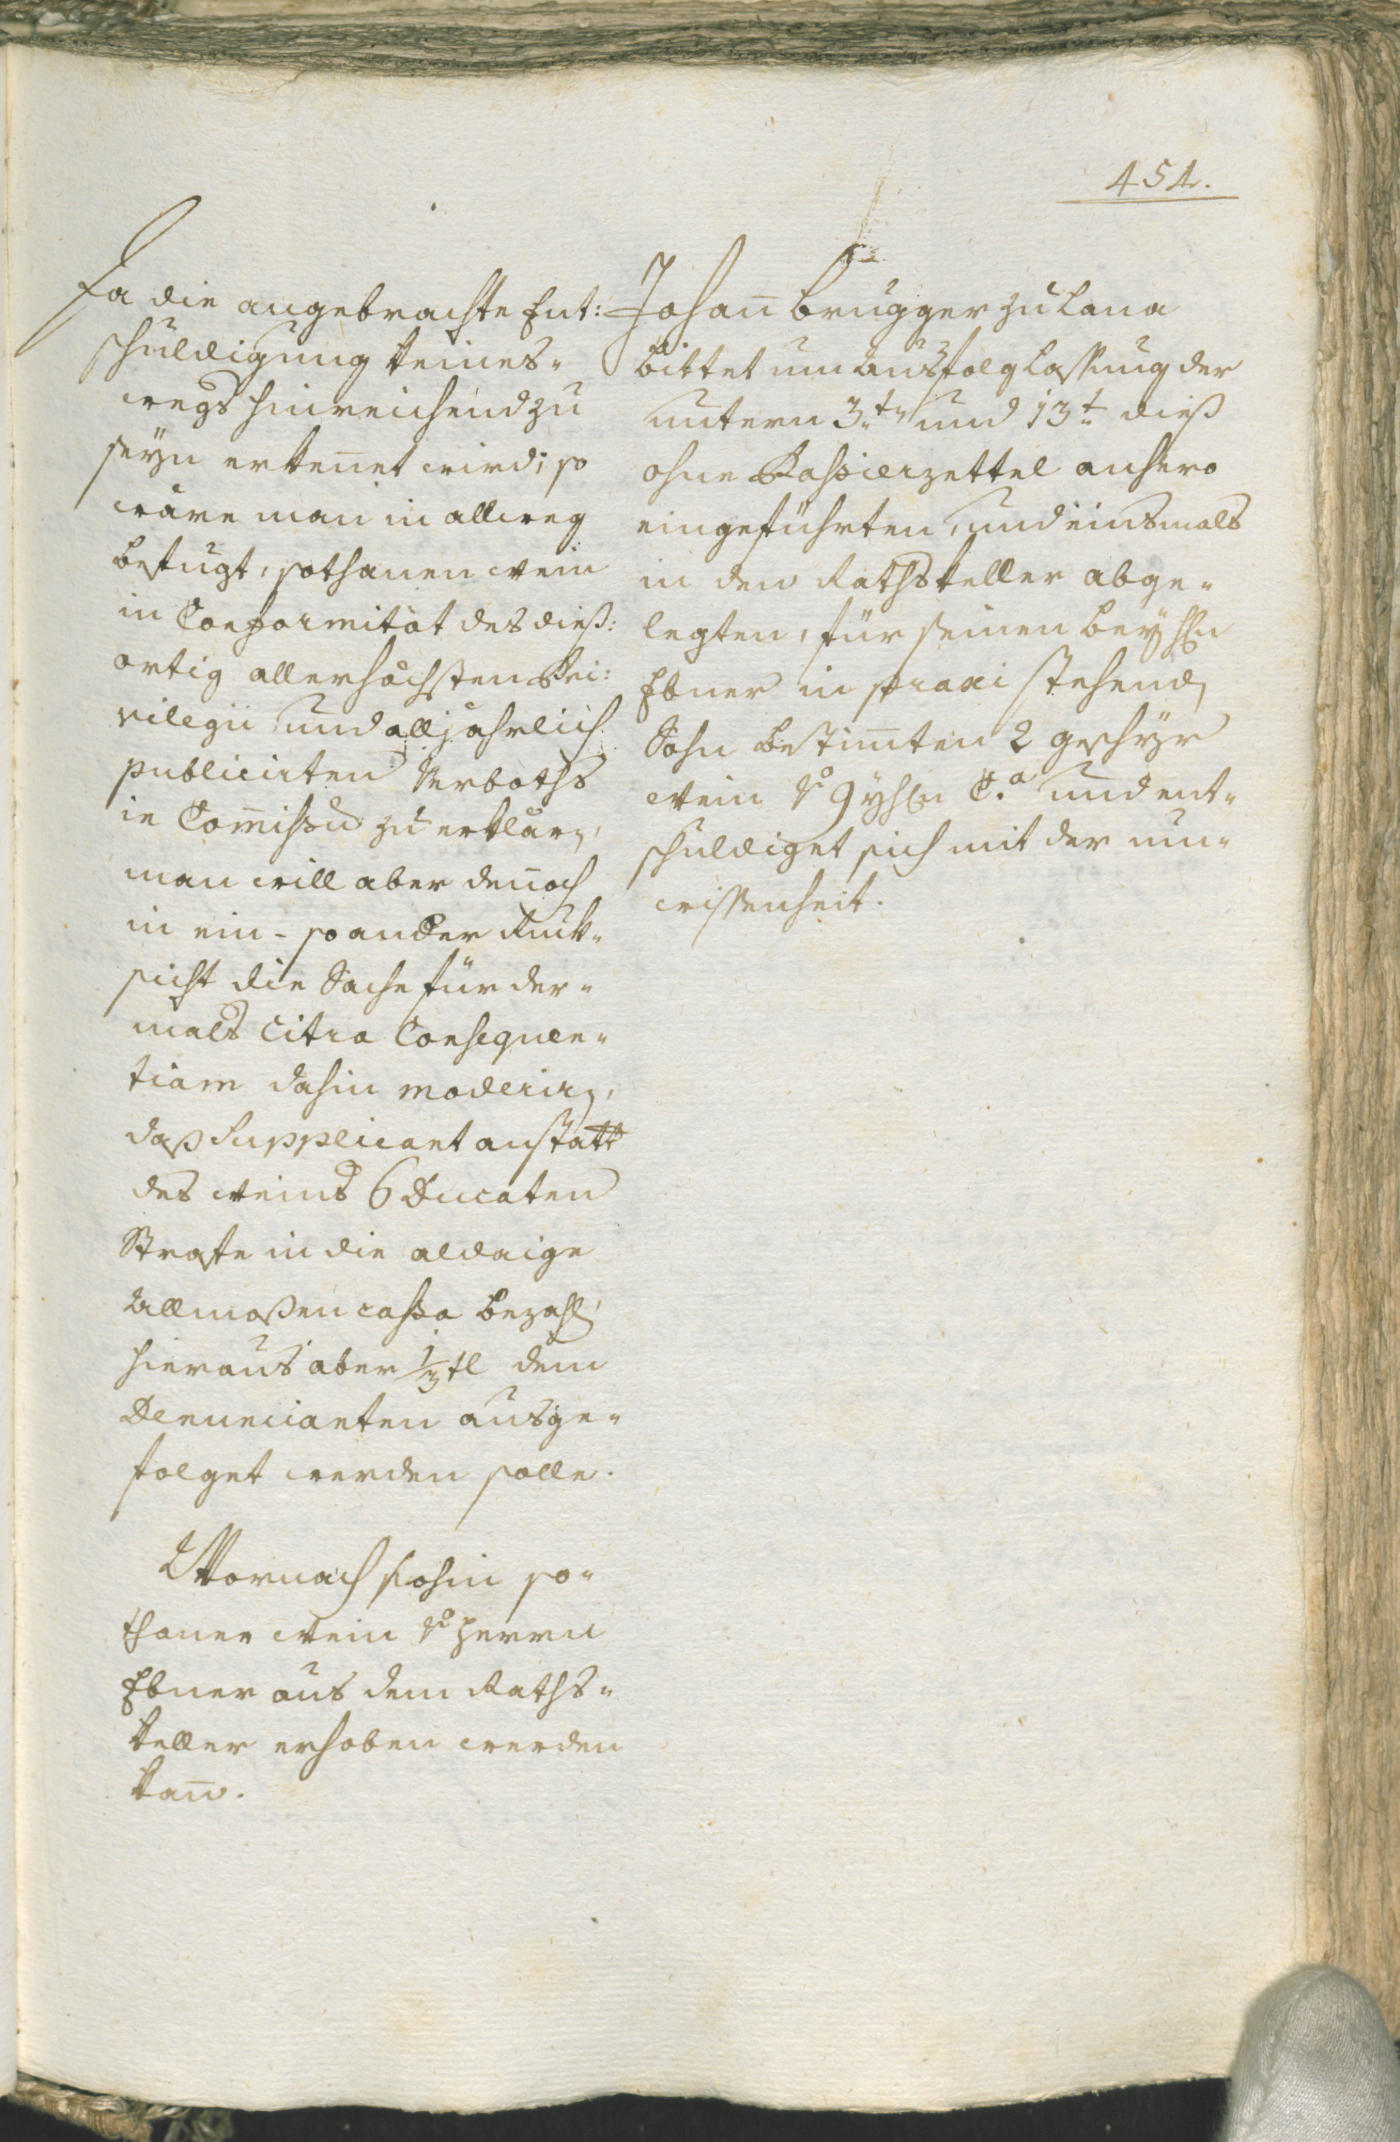 454.
Da die angebrachte Ent:
schuldigung keines-
wegs hinreichend zu
seyn erkeñet wird; so
wäre man in allweg
befugt, sothanen Wein
in Conformität des dieß:
ortig allerhöchsten Pri:
vilegii und alljährlich
publicirten Verboths
in Com̄issum zu erklären,
man will aber deñoch
in ein- so ander Rück-
sicht die Sache für der-
mals citra Consequen-
tiam dahin moderiren,
daß Supplicant anstatt
des Weins 6 Ducaten
Strafe in die aldaige
Allmoßen cassa bezahlen,
hieraus aber 1/3tl dem
Denuncianten ausge-
folget werden solle.
Wornach sohin so-
thaner Wein von Herrn
Ebner aus dem Raths-
keller erhoben werden
kañ.
Johañ Brugger zu Lana
bittet um Ausfolglassung der
untern 3ten und 13t dieß
ohne Passierzettel anhero
eingeführten, und einsmals
in den Rathskeller abge-
legten, für seinen bey Hn
Ebner in praxi stehenden
Sohn bestim̄ten 2 geschyr
Wein von 9 yhrn Ca. und ent-
schuldiget sich mit der un-
wissenheit.